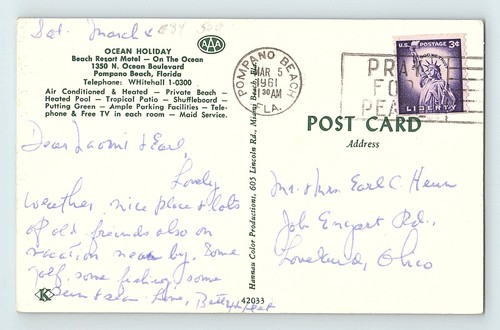 Sat. March 4
OCEAN HOLIDAY
Beach Resort Motel — On The Ocean
1350 N. Ocean Boulevard
Pompano Beach, Florida
Telephone: WHitehall 1-0300
Air Conditioned & Heated — Private Beach —
Heated Pool — Tropical Patio — Shuffleboard —
Putting Green — Ample Parking Facilities — Tele-
phone & Free TV in each room — Maid Service.
AAA
Dear Naomi & Earl,
Lovely
weather, nice place & lots
of old friends also on
vacation near by. Some
golf, some fishing, some
Love,
K
42033
Hannau Color Productions, 605 Lincoln Rd., Miami Beach
POMPANO BEACH
MAR 5
1961
30 AM
FLA.
PRAY
FOR
PEACE
U.S. POSTAGE 3¢
LIBERTY
POST CARD
Address
Mr. & Mrs. Earl C.
Rd.,
Loveland, Ohio